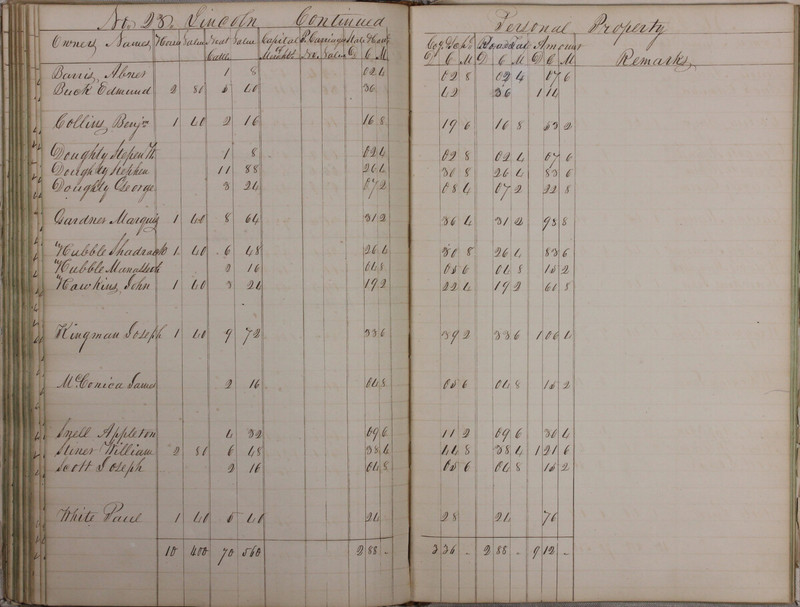 No. 23, Lincoln Continued Personal Property
Owners Names, Horses Value Neat Cattle Value Capital Merchts P. Carriages &c. Value State & Canal D C M Co. & Tshp. D C M Road Tax D C M Amount D C M Remarks,
Barris, Abner 1 8 02 4 02 8 02 4 07 6
Buck Edmund 2 80 5 40 36 42 36 1 14
Collins, Benjn 1 40 2 16 16 8 19 6 16 8 53 2
Doughty Stephen H. 1 8 02 4 02 8 02 4 07 6
Doughty Stephen 11 88 26 4 30 8 26 4 83 6
Doughty George 3 24 07 2 08 4 07 2 22 8
Gardner Marquis 1 40 8 64 31 2 36 4 31 2 98 8
Hubble Shadrach 1 40 6 48 26 4 30 8 26 4 83 6
Hubble Manasseh 2 16 04 8 05 6 04 8 15 2
Hawkins, John 1 40 3 24 19 2 22 4 19 2 60 8
Kingman Joseph 1 40 9 72 33 6 39 2 33 6 1 06 4
McConica James 2 16 04 8 05 6 04 8 15 2
Snell Appleton 4 32 09 6 11 2 09 6 30 4
Stiner William 2 80 6 48 38 4 44 8 38 4 1 21 6
Scott Joseph 2 16 04 8 05 6 04 8 15 2
White Paul 1 40 5 40 24 28 24 76
10 400 70 560 2 88 - 3 36 - 2 88 - 9 12 -